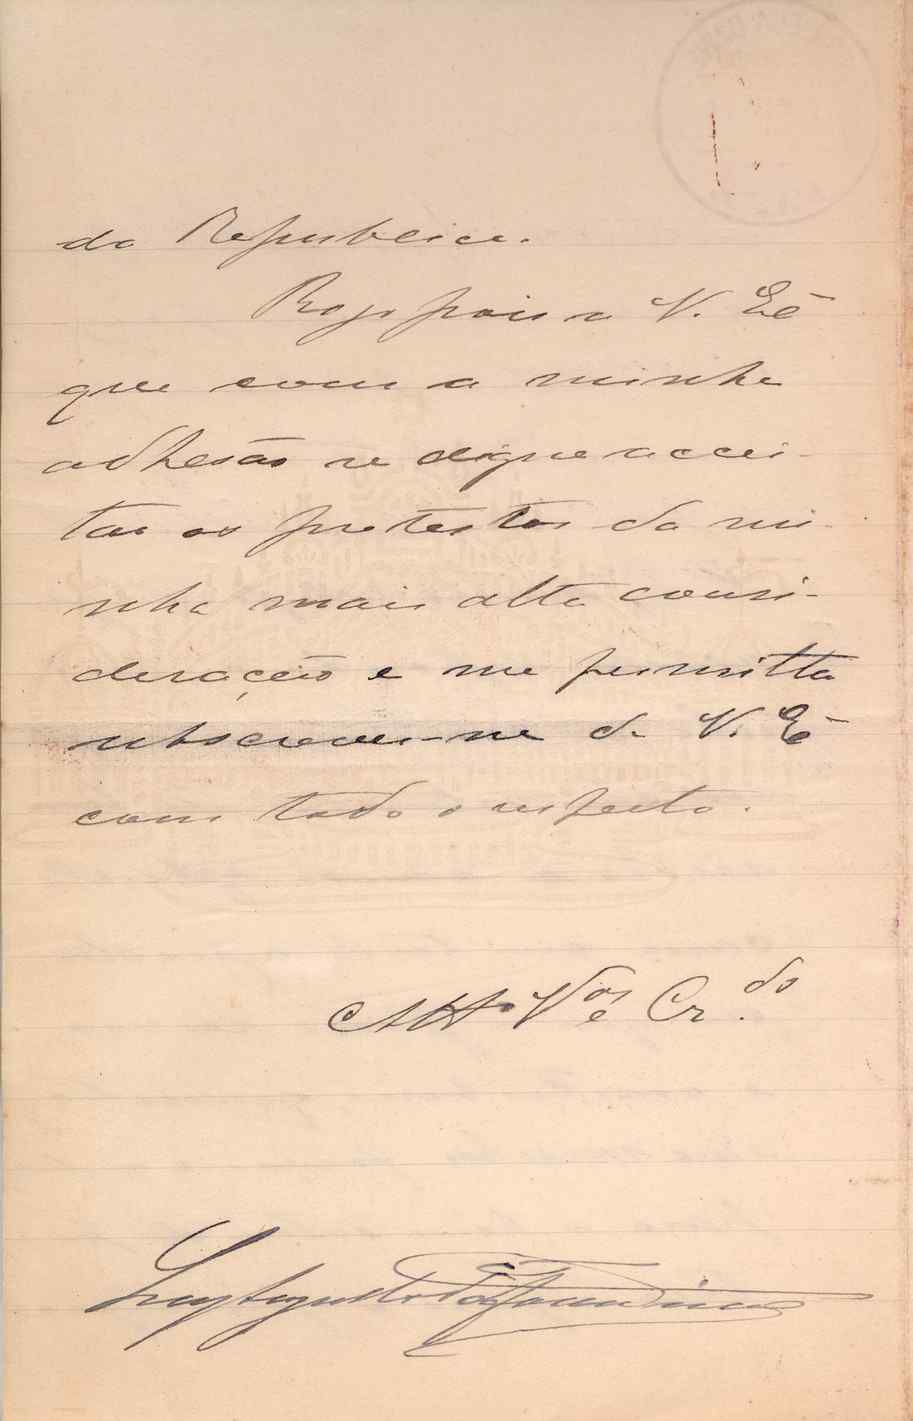 da Republica.
Rogo pois a V. Exª
que com a minha
adhesão se digne accei-
tar os protestos da mi-
nha mais alta consi-
deração e me permitta
subscrever-me de V. Eª
com todo o respeito.
Attº Vºr e Cr.do
Luiz Augusto